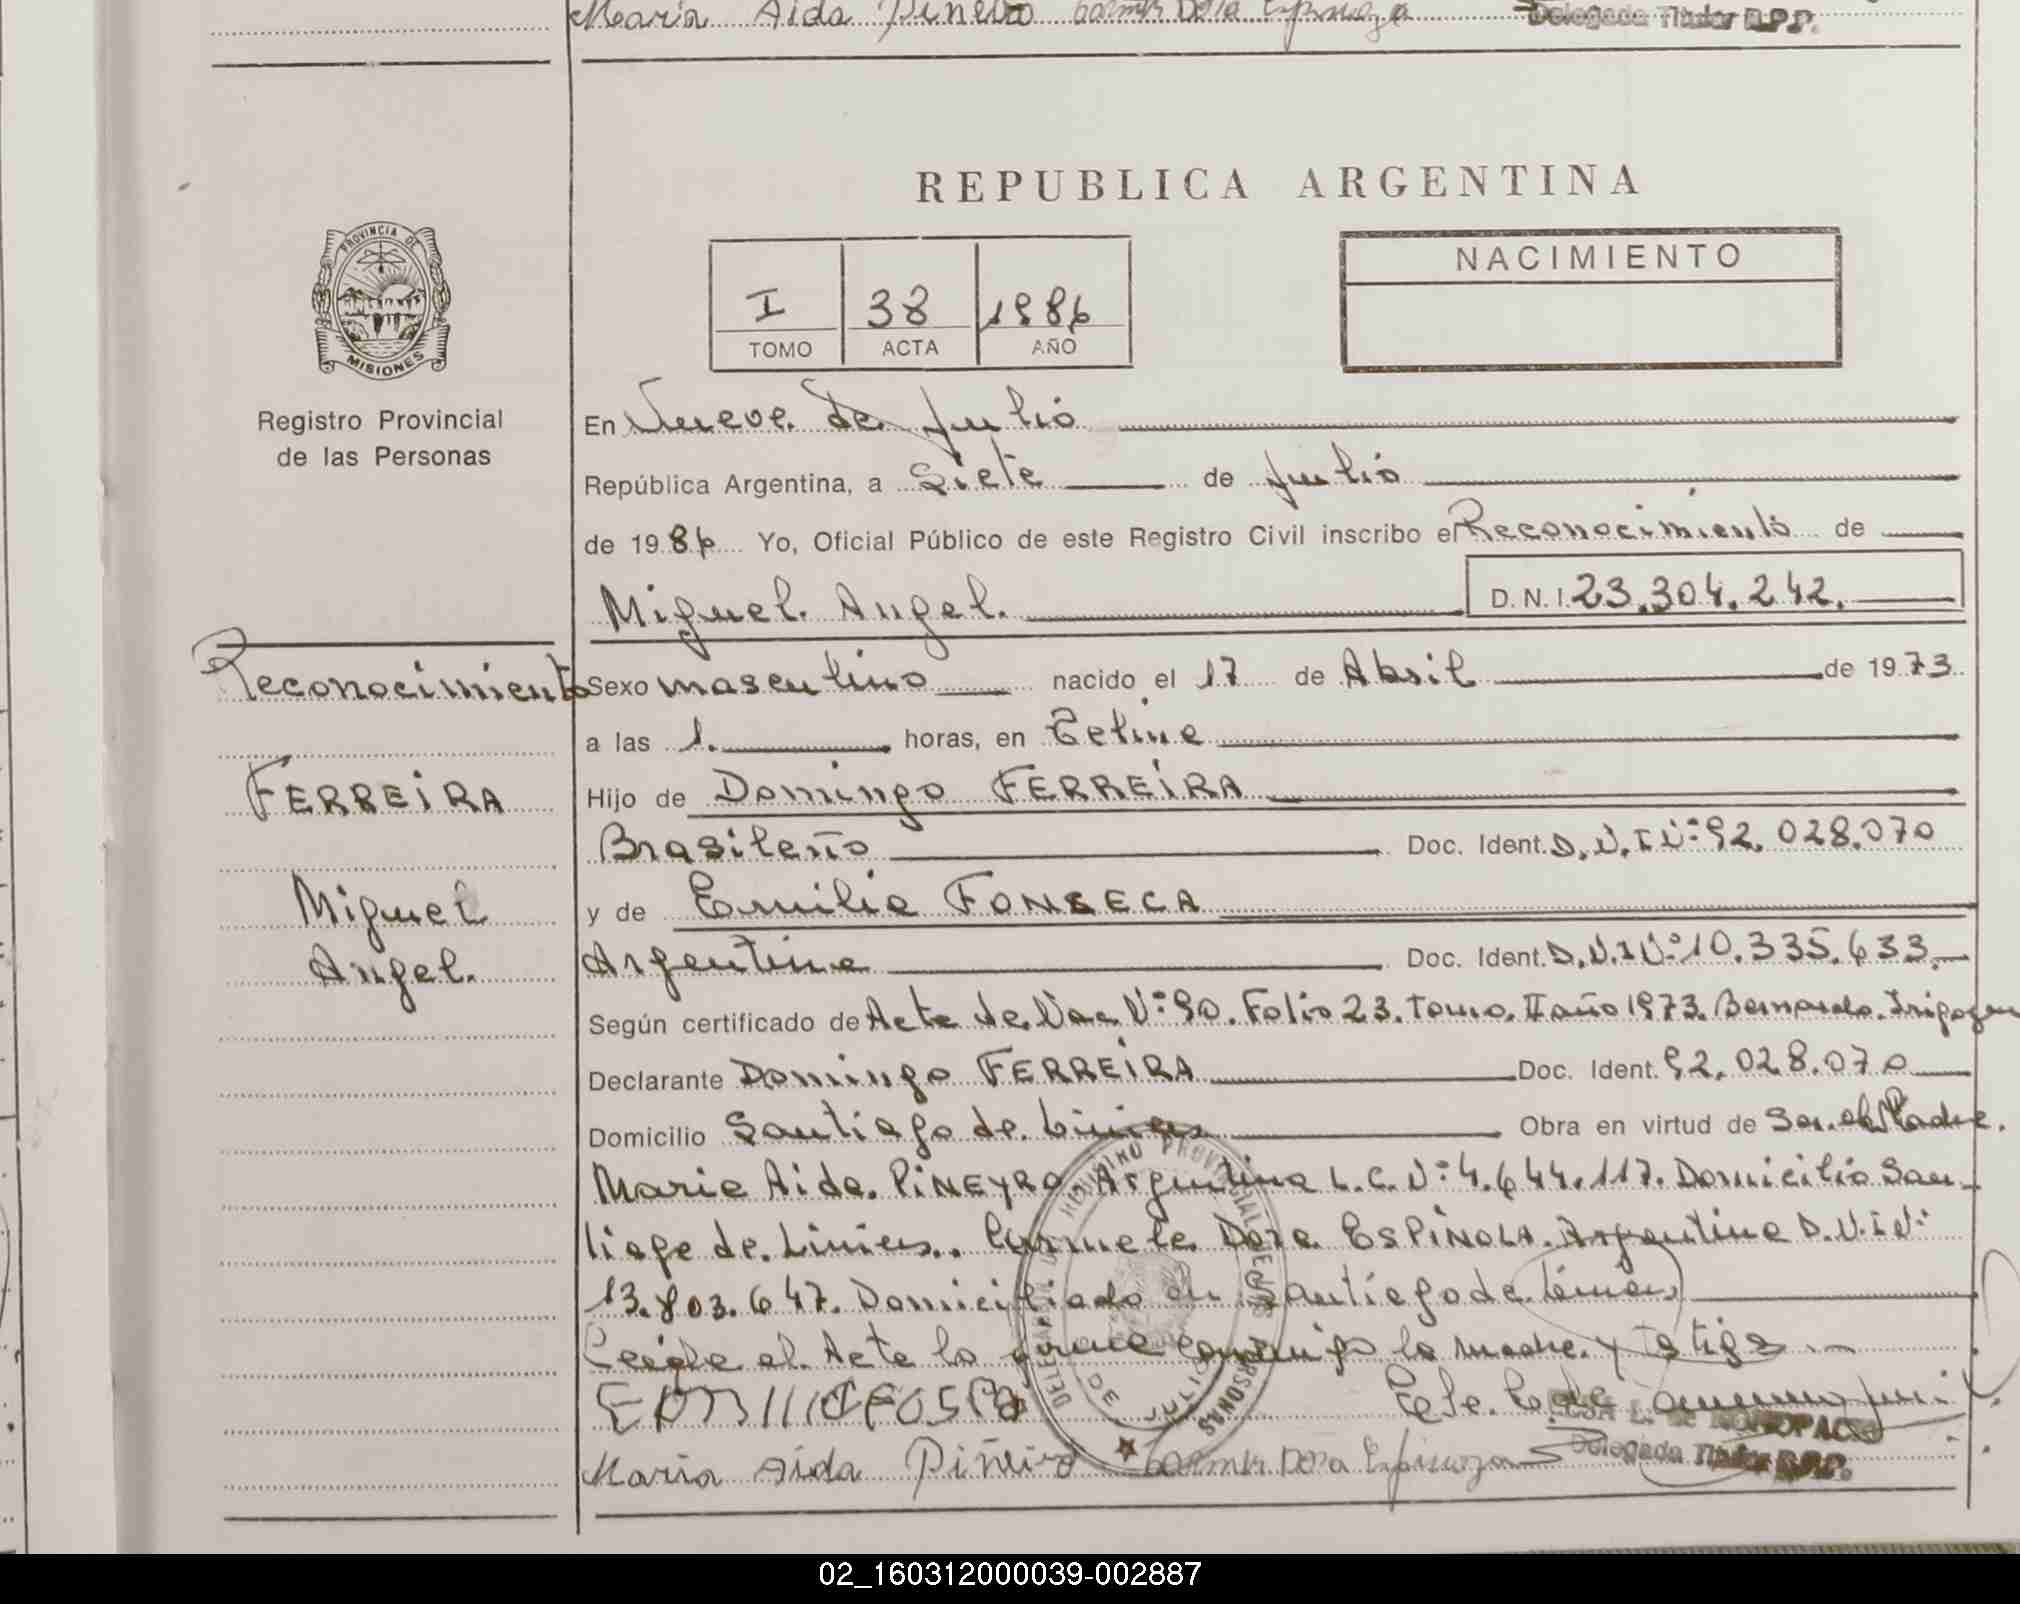 Maria Aida Piñeiro
Delegada Titular R.P.P.
REPUBLICA ARGENTINA
PROVINCIA DE
MISIONES
Registro Provincial
de las Personas
I 38 1986
TOMO ACTA AÑO
NACIMIENTO
En Nueve de Julio
República Argentina, a Siete de Julio
de 1986 Yo, Oficial Público de este Registro Civil inscribo el Reconocimiento de
Miguel Angel. D.N.I. 23.304.242.
Reconocimiento
FERREIRA
Miguel
Angel.
Sexo masculino nacido el 17 de Abril de 1973
a las 1. horas, en
Hijo de Domingo FERREIRA
Brasileño Doc. Ident. D.N.I Nº 92.028.070
y de Emilia FONSECA
Argentina Doc. Ident. D.N.I Nº 10.335.633.
Según certificado de Acta de Nac Nº 90. Folio 23. Tomo. II año 1973. Bernardo. Irigoyen
Declarante Domingo FERREIRA Doc. Ident. 92.028.070
Domicilio Santiago de Liniers Obra en virtud de Ser el Padre.
Maria Aida. PIÑEYRO Argentina L.C. Nº 4.644.117. Domicilio San-
tiago de Liniers. Dora ESPINOLA. Argentina D.N.I Nº
13.803.647. Domiciliada en Santiago de Liniers
Leida el Acta la firma conmigo la madre y testigos
Maria Aida Piñeiro Dora
Delegada Titular R.P.P.
02_160312000039-002887